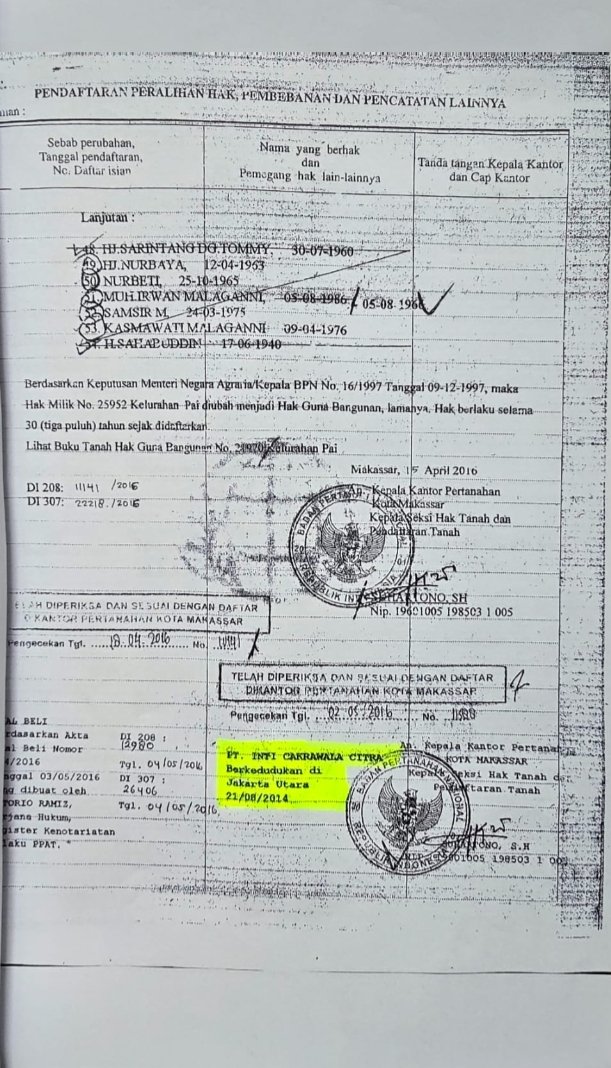 PENDAFTARAN PERALIHAN HAK, PEMBEBANAN DAN PENCATATAN LAINNYA
Sebab perubahan,
Tanggal pendaftaran,
No. Daftar isian
Nama yang berhak
dan
Pemegang hak lain-lainnya
Tanda tangan Kepala Kantor
dan Cap Kantor
Lanjutan :
48. HJ.SARINTANG DG.TOMMY, 30-07-1960
49 HJ.NURBAYA, 12-04-1963
50 NURBETI, 25-10-1965
51 MUH.IRWAN MALAGANNI, 05-08-1986 / 05-08-196
52 SAMSIR M, 24-03-1975
53 KASMAWATI MALAGANNI 09-04-1976
54. H.SAHABUDDIN 17-06-1940
Berdasarkan Keputusan Menteri Negara Agraria/Kepala BPN No. 16/1997 Tanggal 09-12-1997, maka
Hak Milik No. 25952 Kelurahan Pai diubah menjadi Hak Guna Bangunan, lamanya, Hak berlaku selama
30 (tiga puluh) tahun sejak didaftarkan.
Lihat Buku Tanah Hak Guna Bangunan No. Kelurahan Pai
Makassar, 15 April 2016
DI 208: 11141 /2016
DI 307: 22218 /2016
Kepala Kantor Pertanahan
Kota Makassar
Kepala Seksi Hak Tanah dan
Pendaftaran Tanah
SH
Nip. 19601005 198503 1 005
TELAH DIPERIKSA DAN SESUAI DENGAN DAFTAR
DI KANTOR PERTANAHAN KOTA MAKASSAR
Pengecekan Tgl. 12.04.2016 No.
TELAH DIPERIKSA DAN SESUAI DENGAN DAFTAR
DIKANTOR PERTANAHAN KOTA MAKASSAR
Pengecekan Tgl. 02-05-2016 No.
AL BELI
rdasarkan Akta
al Beli Nomor
4/2016
nggal 03/05/2016
ng dibuat oleh
TORIO RAMIZ,
rjana Hukum,
gister Kenotariatan
laku PPAT.
DI 208 :
12980
Tgl. 04/05/2016
DI 307 :
26406
Tgl. 04/05/2016
PT. INTI CAKRAWALA CITRA
Berkedudukan di
Jakarta Utara
21/08/2014
An. Kepala Kantor Pertanahan
KOTA MAKASSAR
Kepala Seksi Hak Tanah d
Pendaftaran Tanah
S.H
198503 1 005